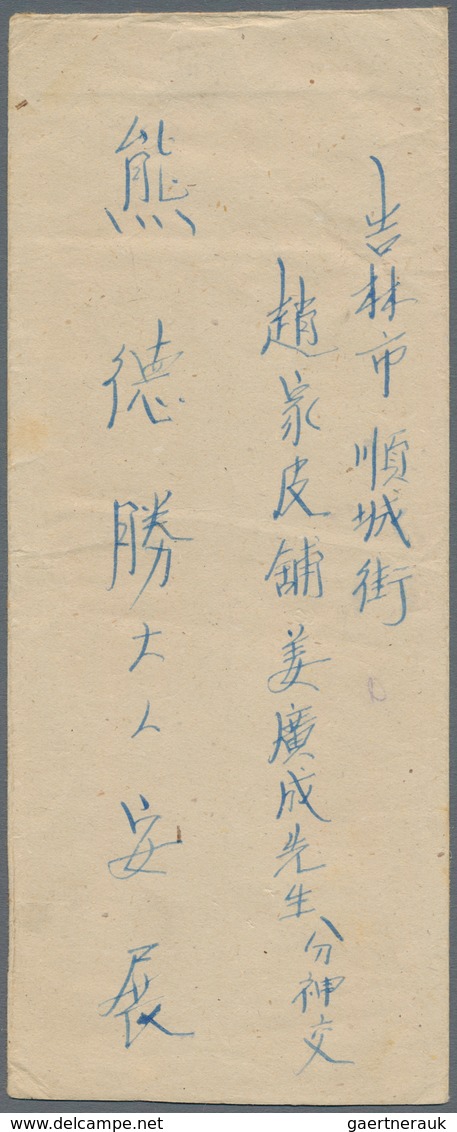 吉林市順城街
趙家皮舖姜廣成先生分神交
熊德勝大人安展
gaertnerauk